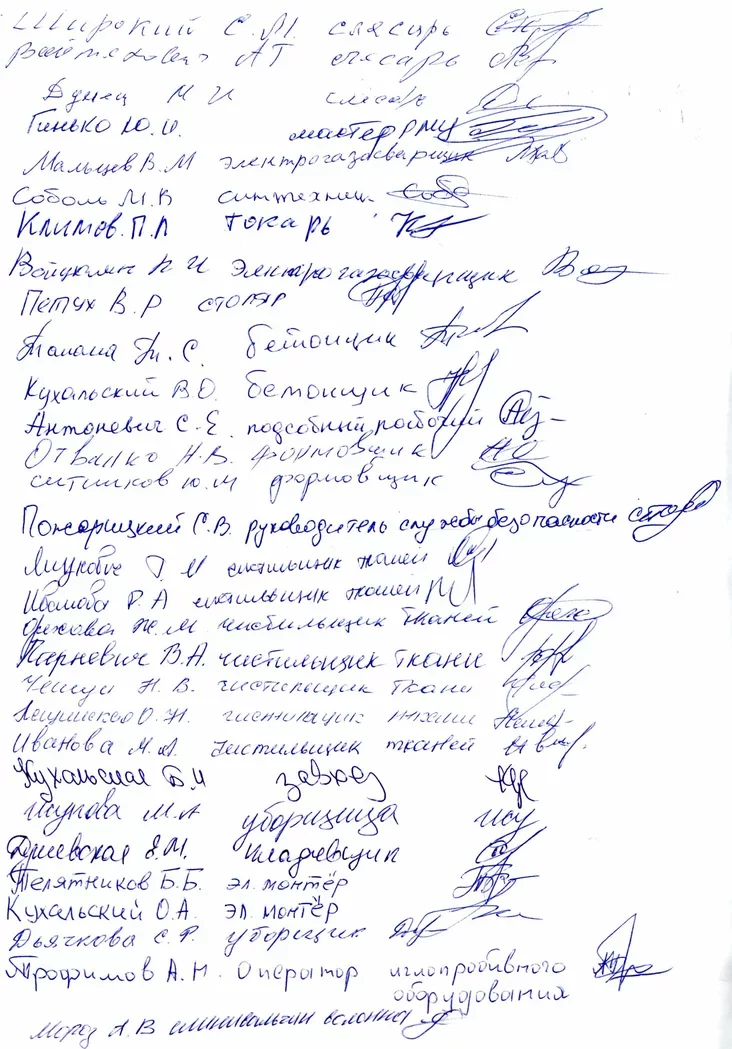 Широкий С.М. слесарь
А Т слесарь
Дунец М И слесарь
Гинько Ю.И. мастер РМЦ
Мальцев В.М электрогазосварщик
Соболь М.В сантехник
Климов.П.П токарь
Н И электрогазосварщик
Петух В.Р столяр
Т.С. бетонщик
Кухальский В.О. бетонщик
Антоневич С.Е. подсобный рабочий
Отвалко Н.В. формовщик
Ситников Ю.М формовщик
Пожарицкий С.В. руководитель службы безопасности
чистильщик тканей
Иванова Р.А чистильщик тканей
Орехова Ж.М. чистильщик тканей
Парневич В.А. чистильщик ткани
Н.В. чистильщик ткани
О.Н. чистильщик ткани
Иванова М.А. чистильщик тканей
Кухальская Б.И завхоз
М.А уборщица
Я.М. кладовщик
Телятников Б.Б. эл.монтёр
Кухальский О.А. эл.монтёр
Дьячкова С.Р. уборщик
Трофимов А.Н. Оператор иглопробивного
оборудования
Мороз А.В